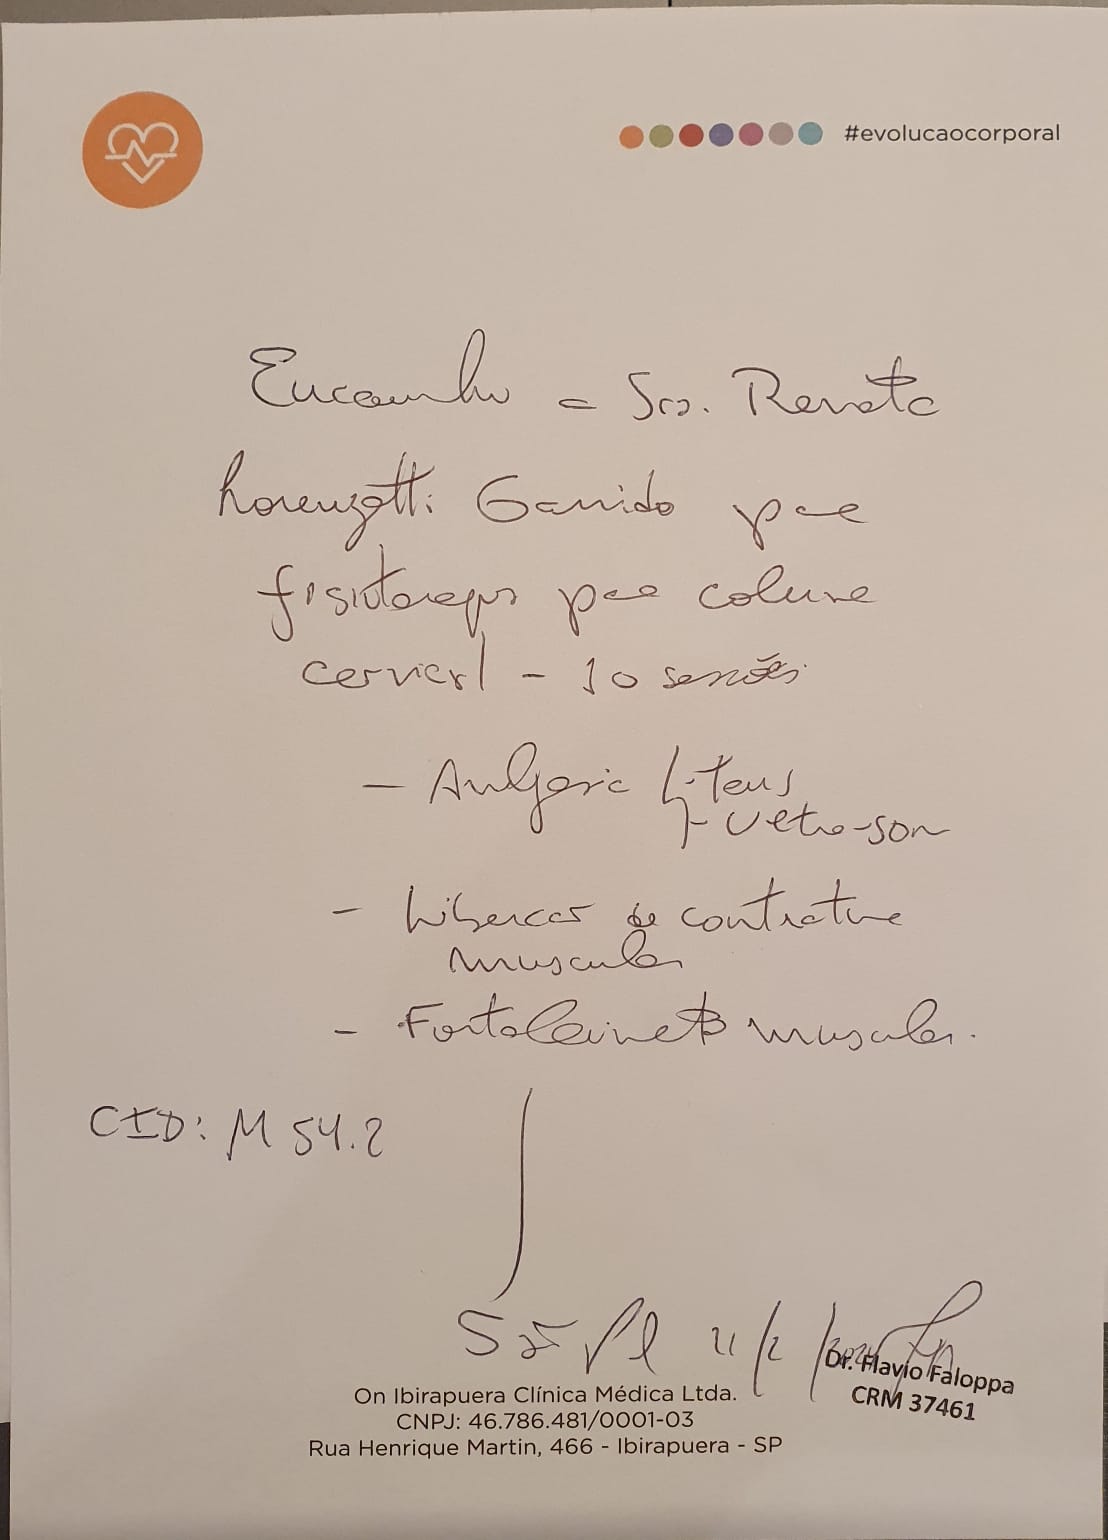 #evolucaocorporal
Encaminho a Sra. Renata
Lorenzetti Garrido para
fisioterapia para coluna
cervical - 10 sessões
- Analgesia - tens
- Ultra-som
- Liberação de contratura
muscular
- Fortalecimento muscular.
CID: M 54.2
São Paulo
Dr. Flavio Faloppa
CRM 37461
On Ibirapuera Clínica Médica Ltda.
CNPJ: 46.786.481/0001-03
Rua Henrique Martin, 466 - Ibirapuera - SP